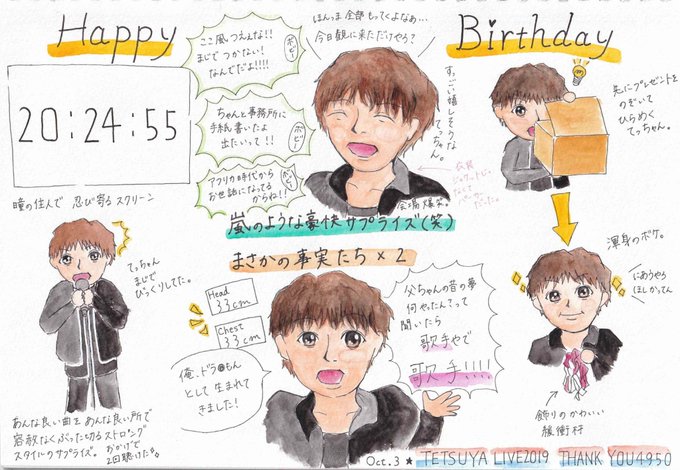 Happy
Birthday
ここ風つえんな!!
まじでつかない!
なんでだよ!!!!
ボビー
ほんっま全部もってくよなぁ…
今日観に来ただけやろ?
20:24:55
ちゃんと事務所に
手紙書いたよ
出たいって!!
ボビー
すっごい嬉しそうな
てっちゃん。
先にプレゼントを
のぞいて
ひらめく
てっちゃん。
アフリカ時代から
お世話になってる
からね!!
ボビー
会場爆笑。
瞳の住人で 忍び寄るスクリーン
嵐のような豪快サプライズ(笑)
まさかの事実たち×2
てっちゃん
まじで
びっくりしてた。
Head
33cm
Chest
33cm
父ちゃんの昔の夢
何やったんてって
聞いたら
歌手やで
歌手!!!!
渾身のボケ。
にあうやろ
ほしかってん
俺、ドラ●もん
として生まれて
きました!
飾りのかわいい
緩衝材
あんな良い曲をあんな良い所で
容赦なくぶった切るストロング
スタイルのサプライズ。
おかげで
2回聴けた。
Oct.3 ★ TETSUYA LIVE2019 THANK YOU4950